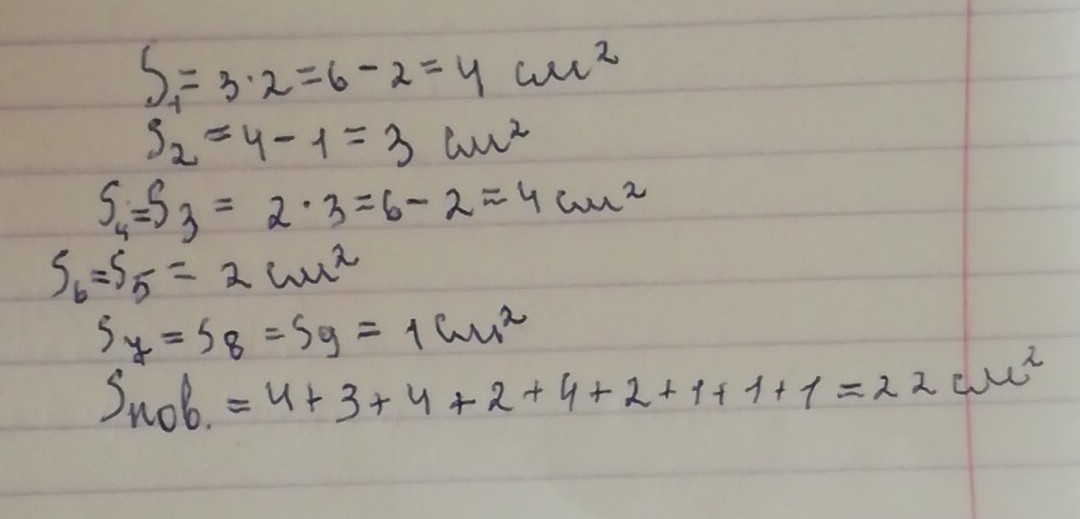 S₁ = 3 · 2 = 6 - 2 = 4 см²
S₂ = 4 - 1 = 3 см²
S₄ = S₃ = 2 · 3 = 6 - 2 = 4 см²
S₆ = S₅ = 2 см²
S₇ = S₈ = S₉ = 1 см²
Sпов. = 4 + 3 + 4 + 2 + 4 + 2 + 1 + 1 + 1 = 22 см²